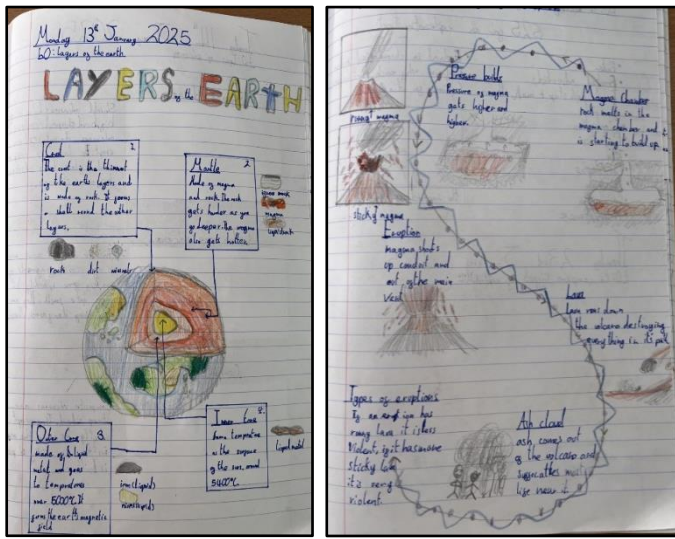 Monday 13th January 2025
LO: Layers of the earth
LAYERS of the EARTH
Crust 1
The crust is the thinnest
of the earths layers and
is made of rock. It forms
a shell round the other
layers.
Mantle 2
Made of magma
and rock. The rock
gets harder as you
go deeper. The magma
also gets hotter.
magma
rock dirt minerals
Outer Core 3
made of liquid
metal and goes
to temperatures
over 5000°C. It
forms the earth magnetic
field
Inner Core
Same temperature
as the surface
of the sun, around
5400°C.
liquid metal
rising magma
sticky magma
Pressure builds
Pressure of magma
gets higher and
higher.
Magma chamber
rock melts in the
magma chamber and
is starting to build up
Eruption
magma shoots
up conduit and
out of the main
vent
Lava
Lava runs down
the volcano destroying
everything in its path
Types of eruptions
If an eruption has
runny lava it is less
violent, if it has more
sticky lava
it is very
violent.
Ash cloud
ash comes out
of the volcano and
suffocates most
life near it.